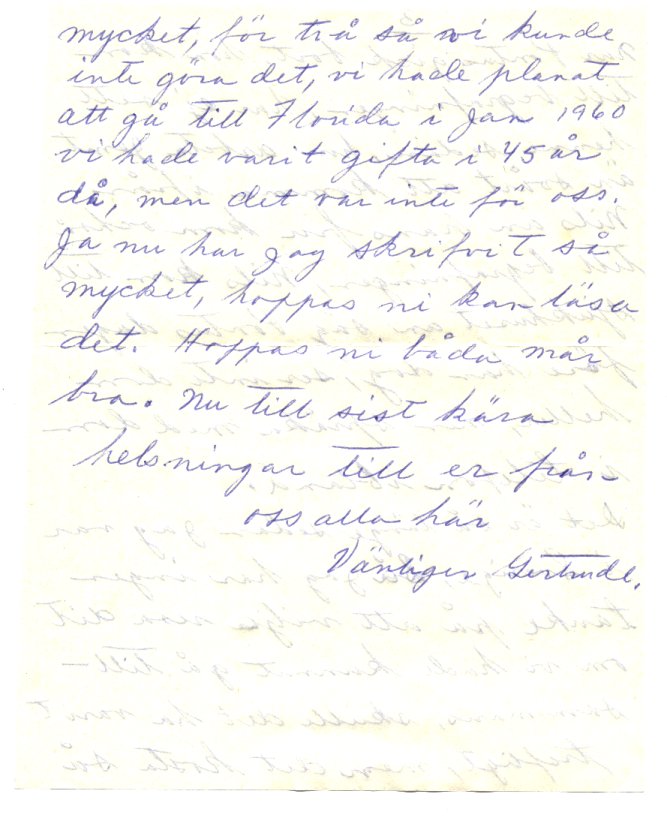 mycket, för två så vi kunde
inte göra det, vi hade planat
att gå till Florida i Jan 1960
vi hade varit gifta i 45 år
då, men det var inte för oss.
Ja nu har Jag skrifvit så
mycket, hoppas ni kan läsa
det. Hoppas ni båda mår
bra. Nu till sist kära
helsningar till er från
oss alla här
Vänligen Gertrude.